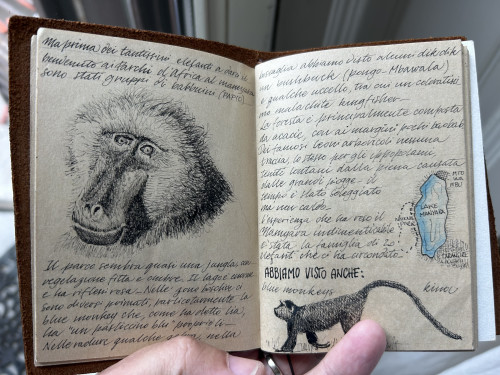 Ma prima dei tantissimi elefanti a dare il
benvenuto ai Parchi d'Africa al
sono stati gruppi di babbuini (PAPIO)
Il parco sembra quasi una jungla, con
vegetazione fitta e ombre. Il lago
e ha riflessi rosa. Nelle
sono diversi primati, particolarmente la
blue monkey che, come ha detto lei,
ha "un pasticcino blu" proprio lì
Nelle radure qualche nella
boscaglia abbiamo visto alcuni dik dik
un bushbuck (pongo - Mbawala)
e qualche uccello, tra cui un coloratissi
mo malachite kingfisher
La foresta è principalmente composta
da acacie, con ai margini pochi baobab
Dei famosi leoni arboricoli nessuna
traccia, lo stesso per gli ippopotami,
tenuti lontani dalla piena causata
dalle grandi piogge. Il
tempo è stato soleggiato
ma non caldo.
L'esperienza che ha reso il
Manyara indimenticabile
è stata la famiglia di 20
elefanti che ci ha circondato
MTO
WA
MBU
LAKE
MANYARA
ABBIAMO VISTO ANCHE:
blue monkeys
kima